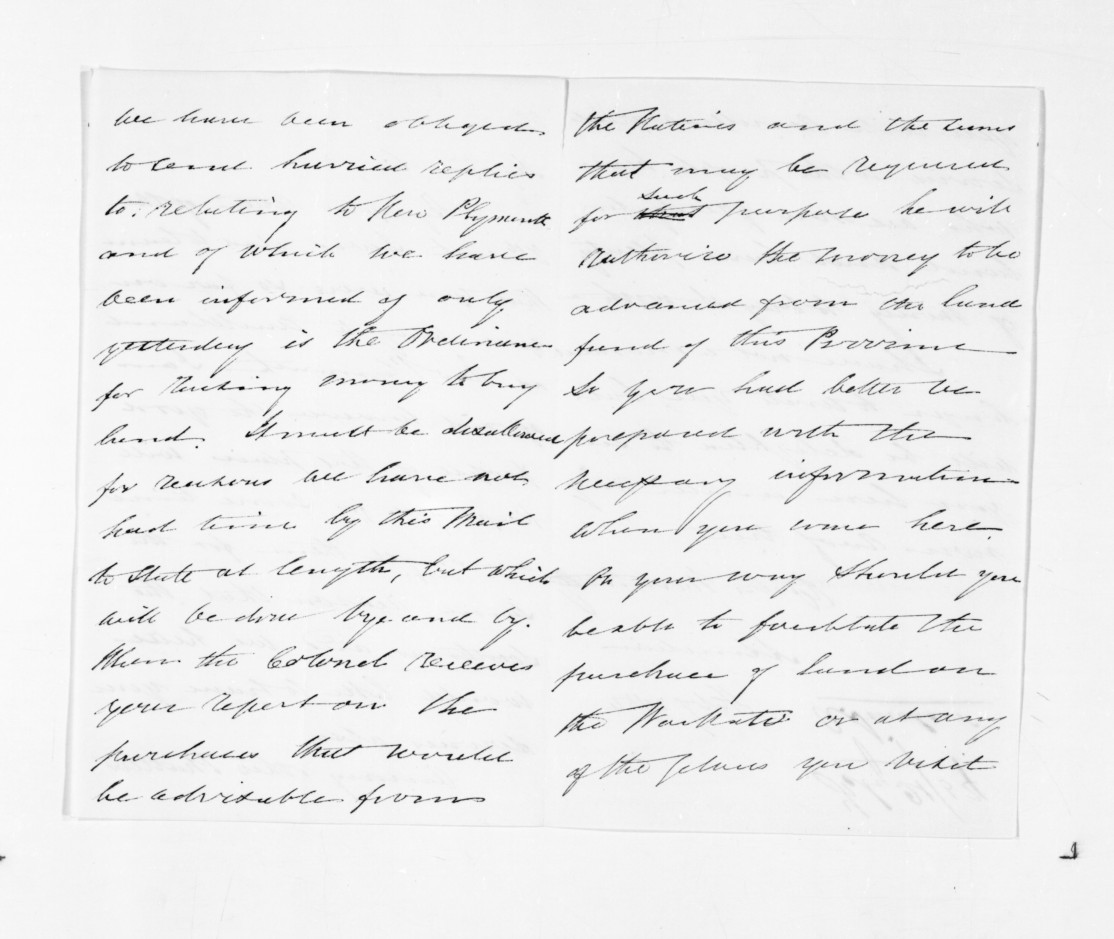 we have been obliged
to send hurried replies
to: relating to New Plymouth
and of which we have
been informed of only
yesterday is the Ordinance
for raising money to buy
land. It must be disallowed
for reasons we have not
had time by this Mail
to state at length, but which
will be done bye and by.
When the Colonel receives
your report on the
purchases that would
be advisable from
the Natives and the sums
that may be required
for that such purpose he will
Authorise the money to be
advanced from the land
fund of this Province
So you had better be
prepared with the
necessary information
when you come here.
On your way should you
be able to facilitate the
purchase of land on
the Waikato or at any
of the places you visit